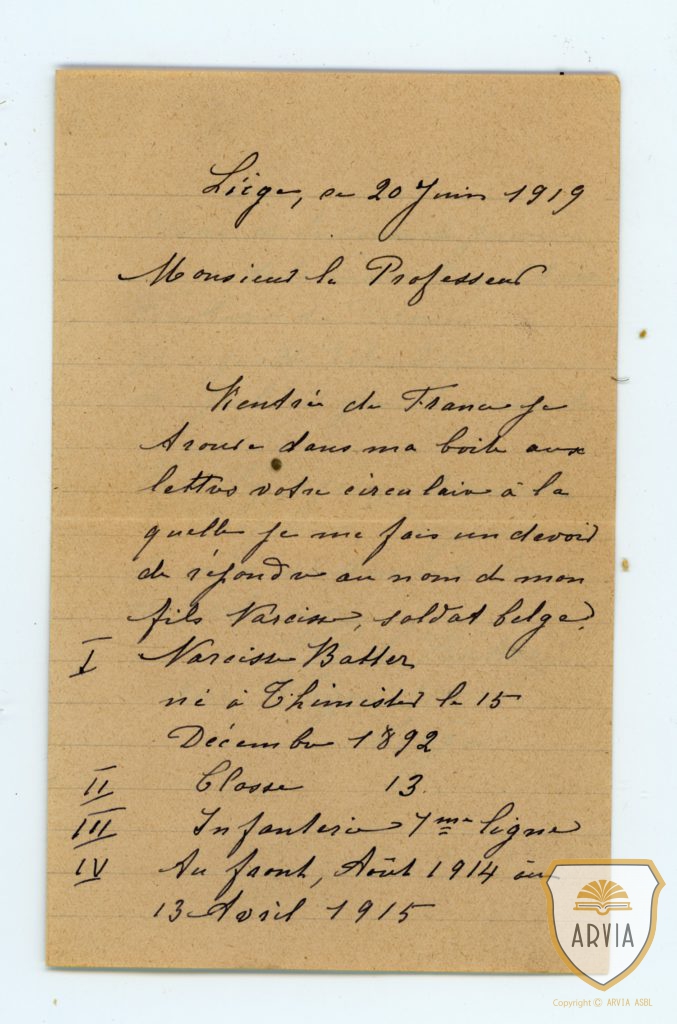 Liège, le 20 Juin 1919
Monsieur le Professeur
Rentrée de France je
trouve dans ma boite aux
lettres votre circulaire à la
quelle je me fais un devoir
de répondre au nom de mon
fils Narcisse, soldat belge.
I Narcisse Batter
né à Thimister le 15
Décembre 1892
II Classe 13.
III Infanterie 7me ligne
IV Au front, Août 1914 au
13 Avril 1915
ARVIA
Copyright © ARVIA ASBL